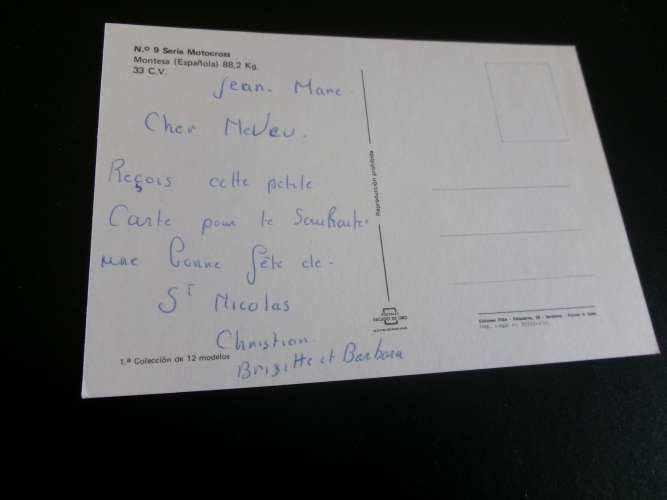 N.º 9 Serie Motocross
Montesa (Española) 88,2 Kg.
33 C.V.
Jean-Marie
Cher Neveu.
Reçois cette petite
Carte pour te Souhaiter
une bonne fête de
St Nicolas
Christian
Brigitte et Barbara
1.ª Colección de 12 modelos
Reproducción prohibida
ESCUDO DE ORO